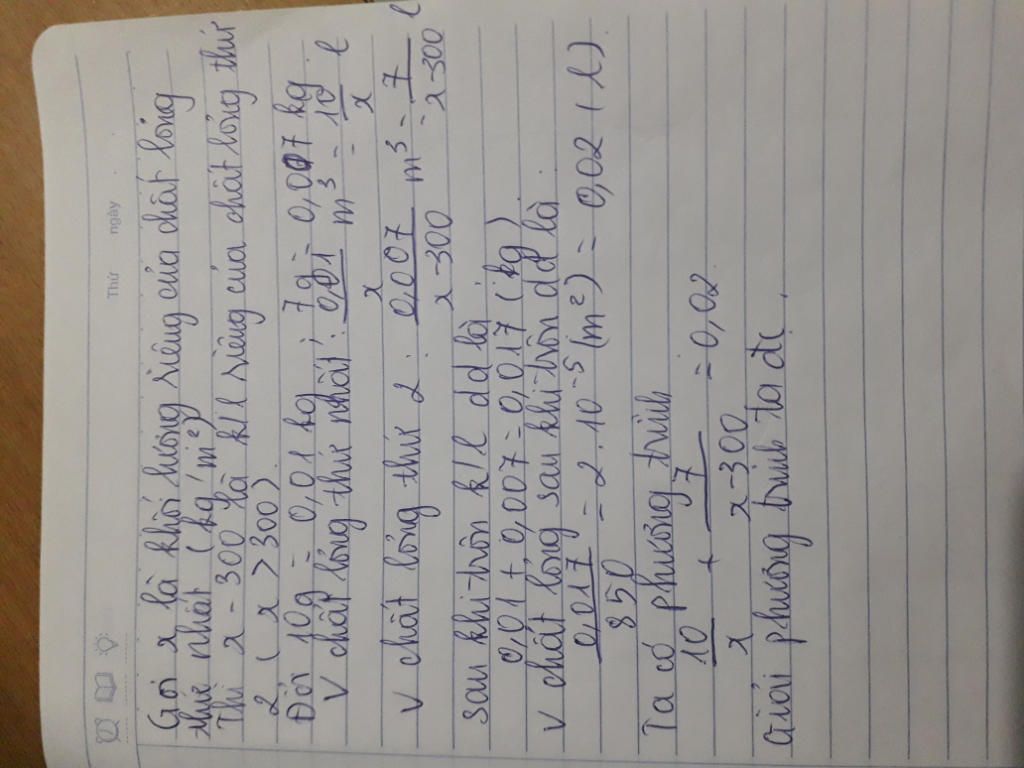 Thứ ngày
Gọi x là khối lượng riêng của chất lỏng
thứ nhất (kg/m²)
Thì x - 300 là k/l riêng của chất lỏng thứ
2 (x > 300)
Đổi 10g = 0,01 kg, 7g = 0,007 kg
V chất lỏng thứ nhất: 0,01/x m³ = 10/x l
V chất lỏng thứ 2: 0,007/x-300 m³ = 7/x-300 l
Sau khi trộn k/l dd là
0,01 + 0,007 = 0,017 (kg)
V chất lỏng sau khi trộn dd là
0,017/850 = 2.10⁻⁵ (m²) = 0,02 (l)
Ta có phương trình
10/x + 7/x-300 = 0,02
Giải phương trình ta đc